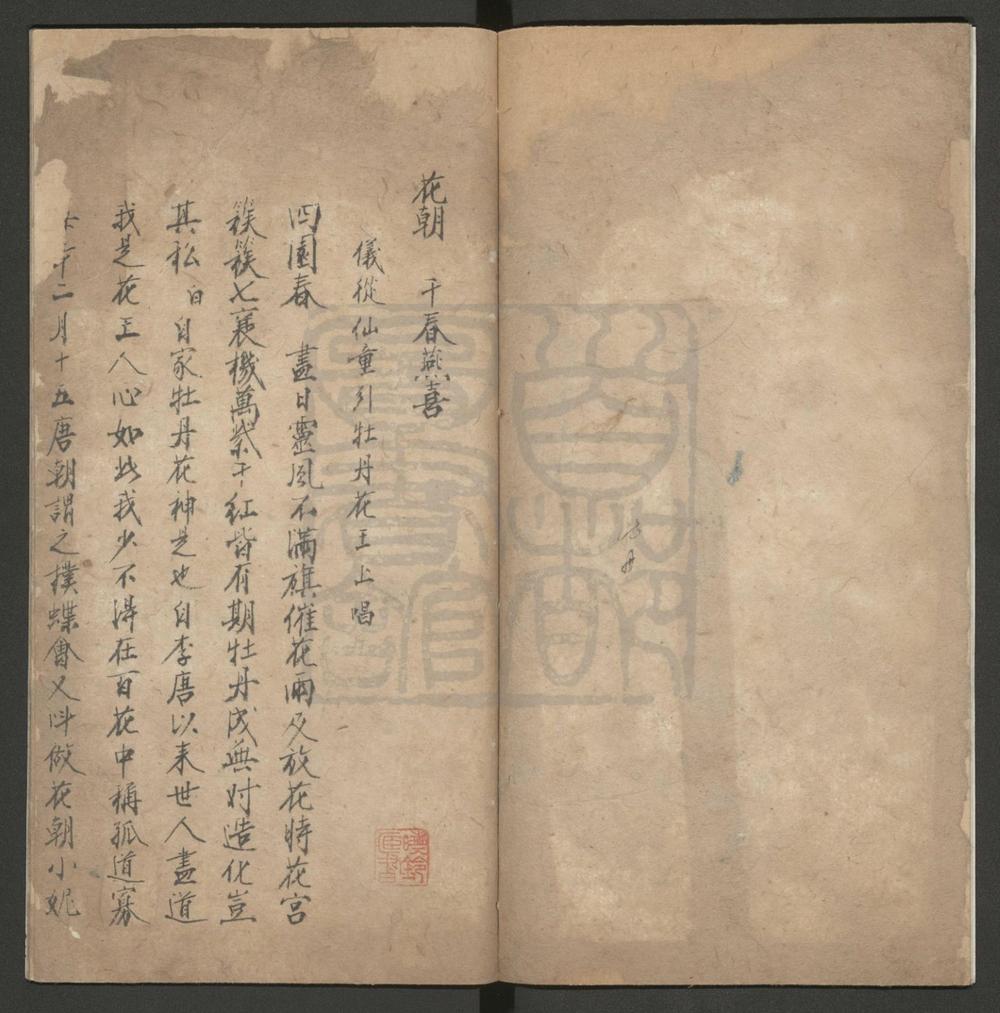 花朝　千春燕喜
儀從仙童引牡丹花王上唱
四園春　盡日靈風不滿旗催花雨又放花時花宮
簇簇七襄機萬紫千紅皆有期牡丹成無対造化豈
其私　白自家牡丹花神是也自李唐以来世人盡道
我是花王人心如此我少不得在百花中稱孤道寡
二月十五唐朝謂之撲蝶會又呌做花朝小妮